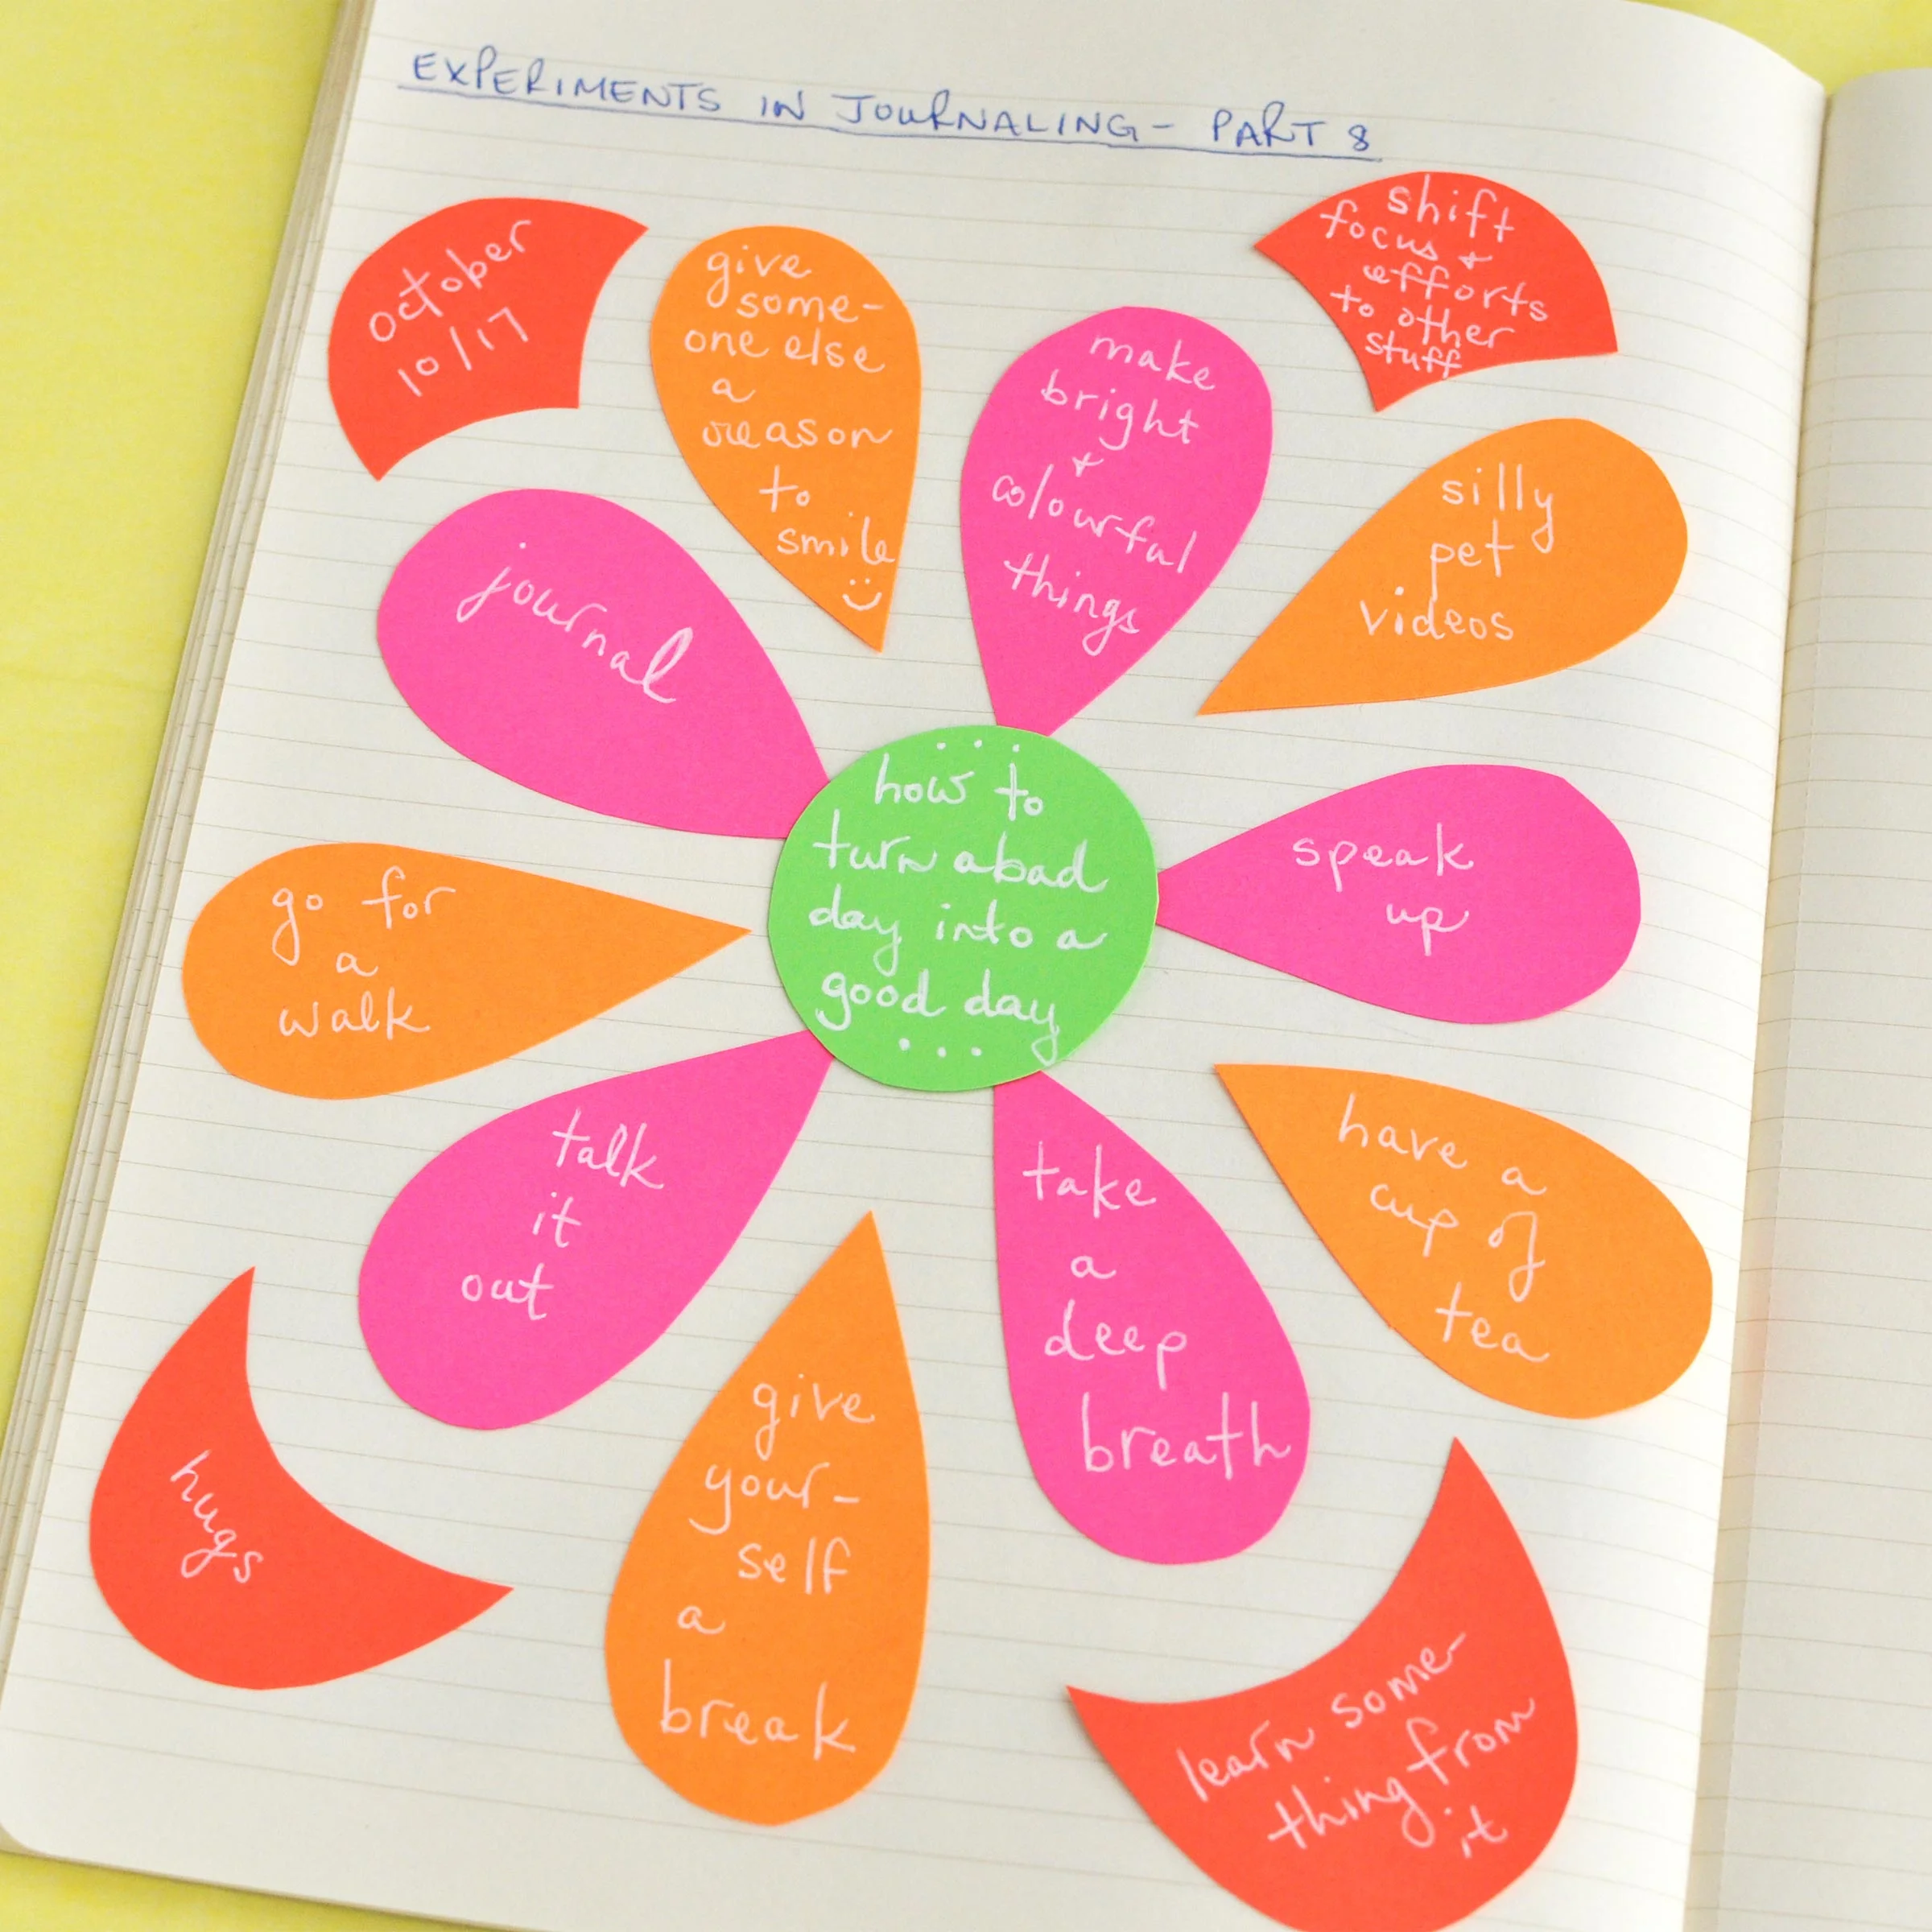 EXPERIMENTS IN JOURNALING - PART 8
october
10/17
give
some-
one else
a
reason
to
smile
make
bright
+
colourful
things
shift
focus +
efforts
to other
stuff
silly
pet
videos
journal
... how to
turn a bad
day into a
good day
...
speak
up
go for
a
walk
talk
it
out
take
a
deep
breath
have a
cup of
tea
hugs
give
your-
self
a
break
learn some-
thing from
it